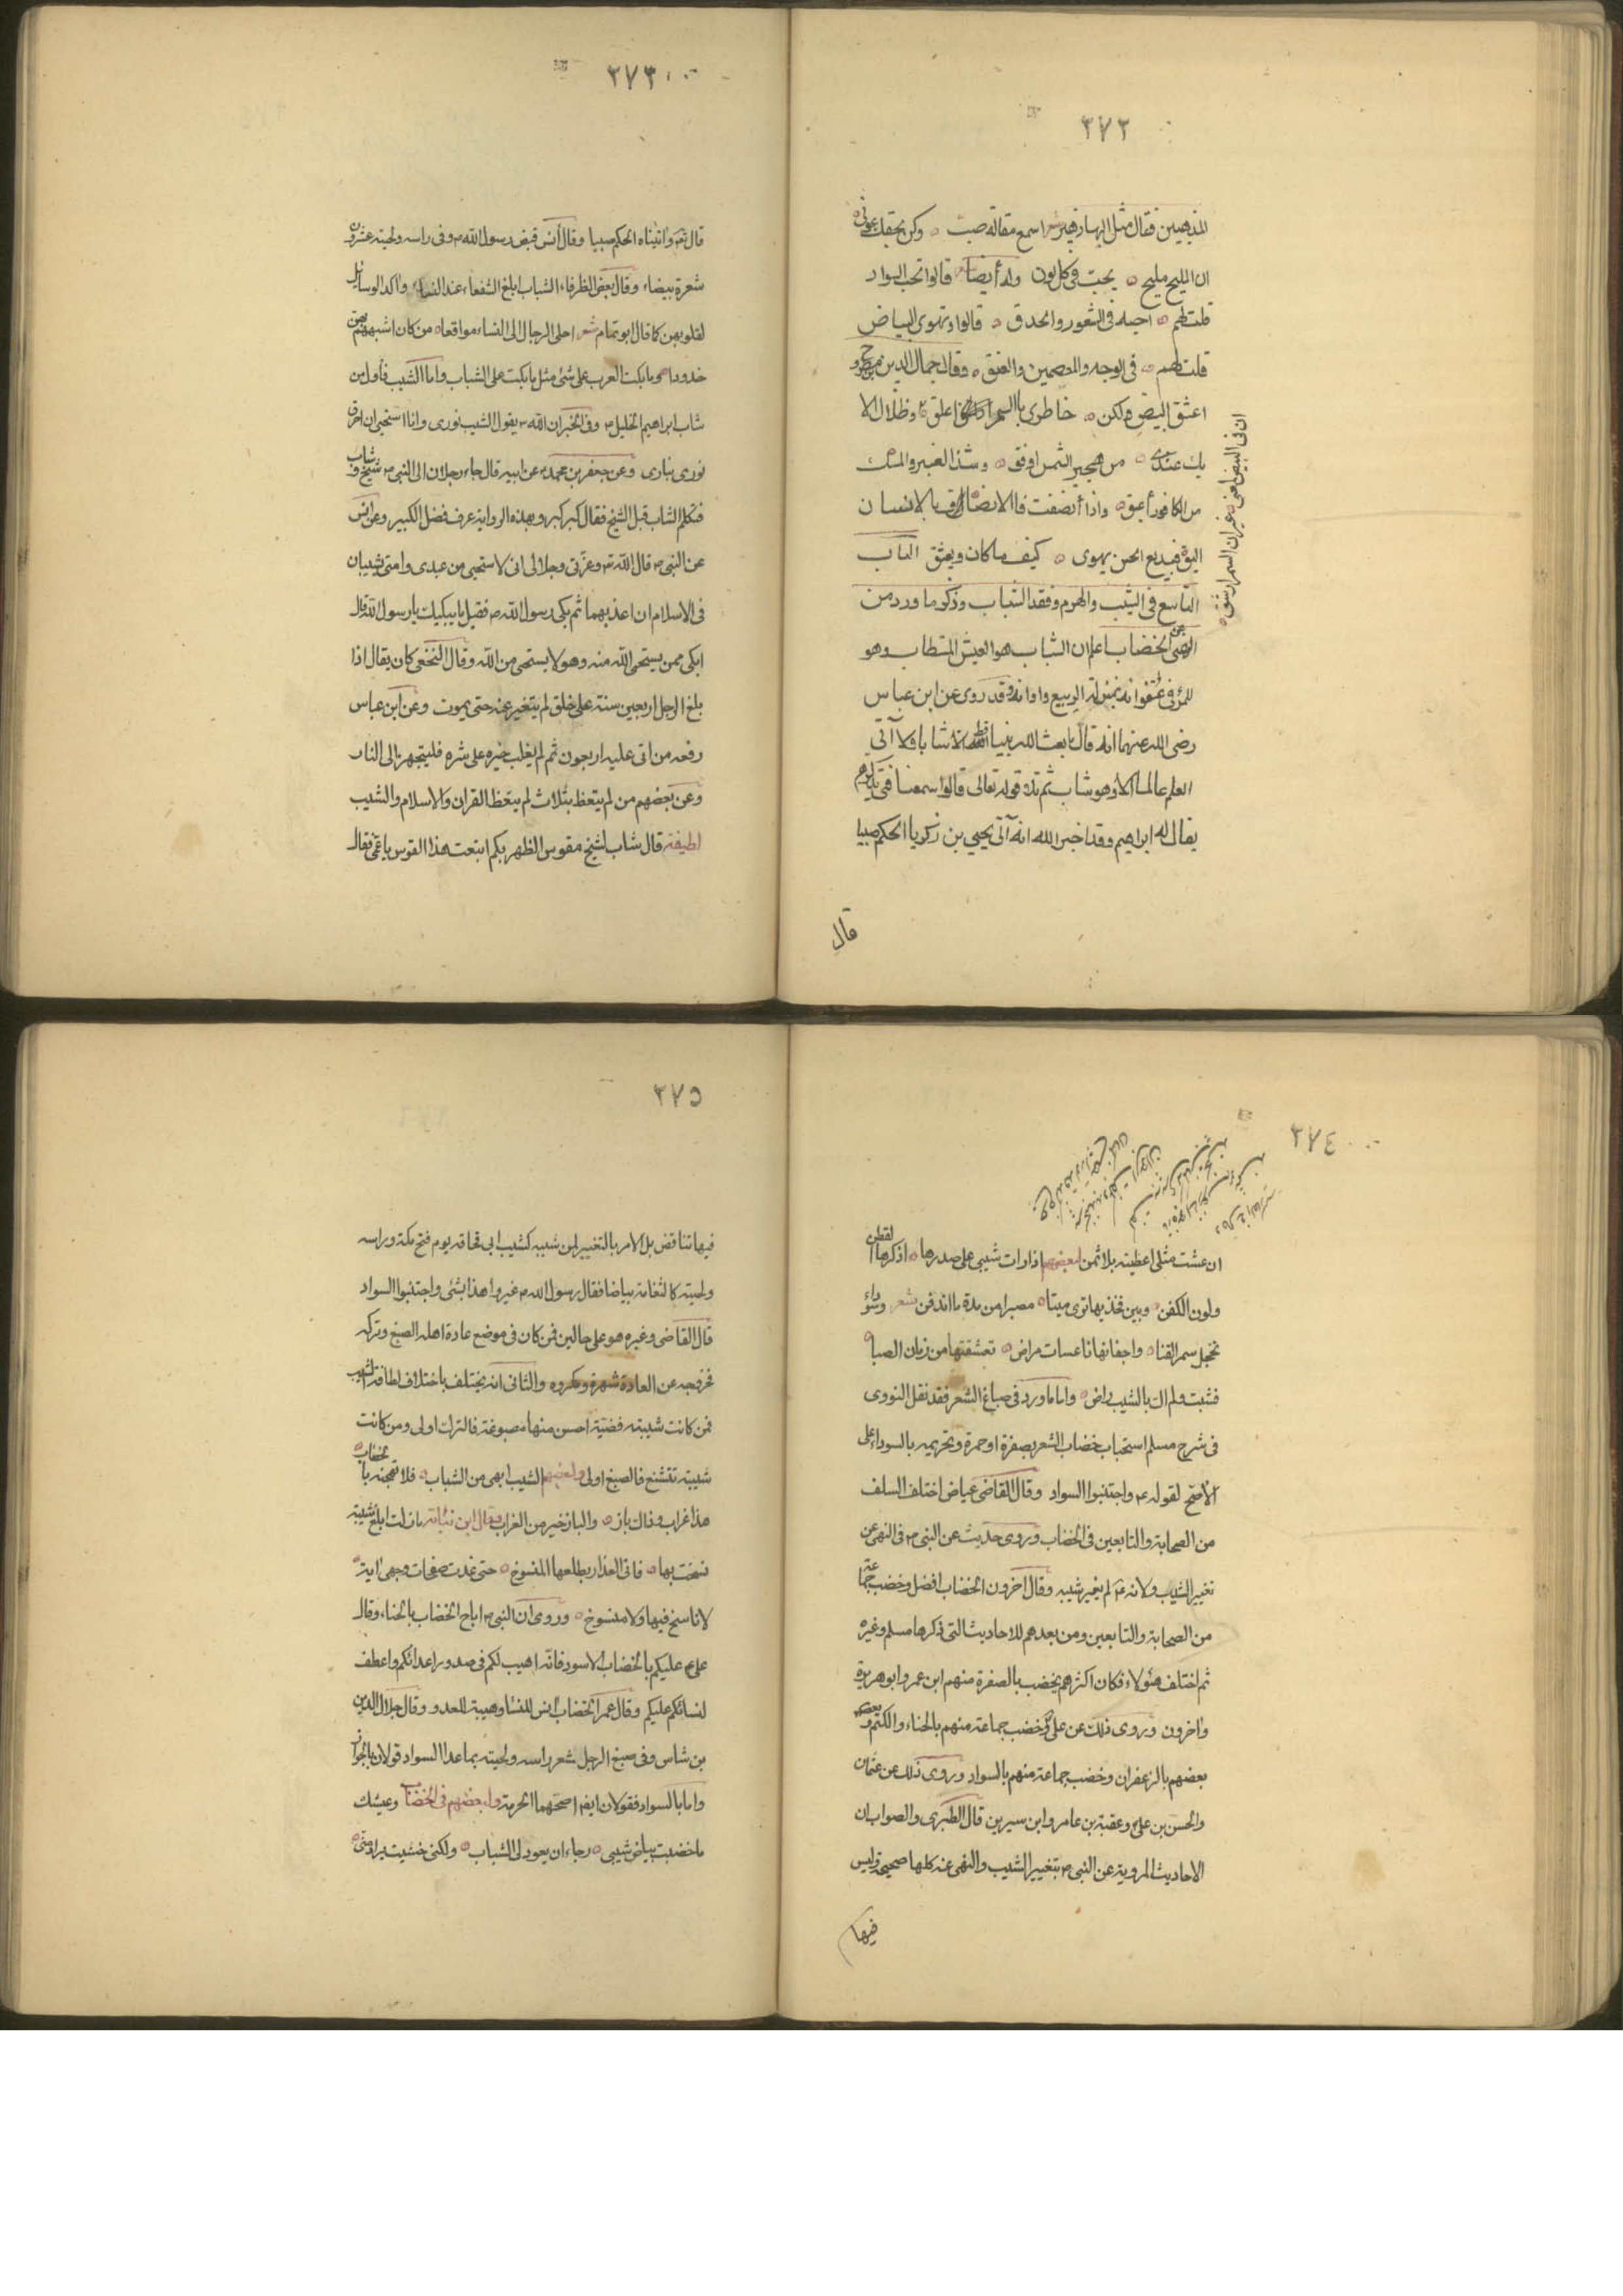 ٣٧٢
المذهبين فقال مثل البهاء زهير شعر اسمع مقالة صب وكن بحقك عونى
ان المليح مليح يحب فى كل لون وله أيضا قالوا تحب السواد
قلت لهم احبه فى الثغور والحدق قالوا وتهوى البياض
قلت لهم فى الوجه والمعصمين والعنق وقال جمال الدين
اعشق البيض ولكن خاطرى بالسمر اعلق وظلال الا
يك عندى من هجير الشمس اوفق وشذا العنبر والمسك
من الكافور أعبق واذا أنصفت فالانصاف بالانسان
اليق فبديع الحسن يهوى كيف ما كان ويعشق الباب
التاسع فى الشيب والهرم وفقد الشباب وذكر ما ورد من
النهى عن الخضاب اعلم ان الشباب هو العيش المستطاب وهو
للمرء فى عنفوانه بمنزلة الربيع واوانه وقد روى عن ابن عباس
رضى الله عنهما انه قال ما بعث الله نبيا قط الا شابا ولا آتى
العلم عالما الا وهو شاب ثم تلا قوله تعالى قالوا سمعنا فتى يذكرهم
يقال له ابراهيم وقد اخبر الله انه آتى يحيى بن زكريا الحكم صبيا
ان فى البيض لمعنى غير ان السمر ارشق
قال
٣٧٣
قال تع واتيناه الحكم صبيا وقال أنس قبض رسول الله م وفى راسه ولحيته عشرون
شعرة بيضاء وقال بعض الظرفاء الشباب ابلغ الشفعاء عند النساء واكد الوسايل
لقلوبهن كما قال ابو تمام شعر احلى الرجال الى النساء مواقعا من كان اشبههم بهن
خدودا وما بكت العرب على شئ مثل ما بكت على الشباب واما الشيب فاول من
شاب ابراهيم الخليل م وفى الخبر ان الله تع يقول الشيب نورى وانا استحيى ان احرق
نورى بنارى وعن جعفر بن محمد عن ابيه قال جاء رجلان الى النبى م شيخ وشاب
فتكلم الشاب قبل الشيخ فقال كبر كبر وبهذه الرواية عرف فضل الكبير وعن انس
عن النبى م قال الله تع وعزتى وجلالى انى لاستحيى من عبدى وامتى يشيبان
فى الاسلام ان اعذبهما ثم بكى رسول الله م فقيل ما يبكيك يا رسول الله قال
ابكى ممن يستحى الله منه وهو لا يستحى من الله وقال النخعى كان يقال اذا
بلغ الرجل اربعين سنة على خلق لم يتغير عنه حتى يموت وعن ابن عباس
رفعه من اتى عليه اربعون ثم لم يغلب خيره على شره فليتجهز الى النار
وعن بعضهم من لم يتعظ بثلاث لم يتعظ القران والاسلام والشيب
لطيفة قال شاب لشيخ مقوس الظهر بكم ابتعت هذا القوس يا عمى فقال
٣٧٤
ان عشت مثلى اعطيته بلا ثمن لبعضهم اذا رات شيبى على صدرها اذكرها القطن
ولون الكفن وبين فخذيها ترى ميتا مصبرا من مدة ما اندفن شعر وسوداء
تخجل سمر القنا واجفانها ناعسات مراض تعشقتها من زمان الصبا
فشبت ولم اك بالشيب راض واما ما ورد فى صباغ الشعر فقد نقل النووى
فى شرح مسلم استحباب خضاب الشعر بصفرة او حمرة وتحريمه بالسواد على
الأصح لقوله ع واجتنبوا السواد وقال القاضى عياض اختلف السلف
من الصحابة والتابعين فى الخضاب وروى حديث عن النبى م فى النهى عن
تغيير الشيب ولانه ع لم يغير شيبه وقال آخرون الخضاب افضل وخضب جماعة
من الصحابة والتابعين ومن بعدهم للاحاديث التى ذكرها مسلم وغيره
ثم اختلف هئولاء فكان اكثرهم يخضب بالصفرة منهم ابن عمر وابو هريرة
واخرون وروى ذلك عن على وخضب جماعة منهم بالحناء والكتم وبعضهم
بعضهم بالزعفران وخضب جماعة منهم بالسواد وروى ذلك عن عثمان
والحسن بن على وعقبة بن عامر وابن سيرين قال الطبرى والصواب ان
الاحاديث المروية عن النبى م بتغيير الشيب والنهى عنه كلها صحيحة وليس
فيها
٣٧٥
فيها تناقض بل الامر بالتغيير لمن شيبه كشيب ابى قحافة يوم فتح مكة وراسه
ولحيته كالثغامة بياضا فقال رسول الله م غيروا هذا بشئ واجتنبوا السواد
قال القاضى وغيره هو على حالين فمن كان فى موضع عادة اهله الصبغ وتركه
فخروجه عن العادة شهرة ومكروه والثانى انه يختلف باختلاف لطافة الشيب
فمن كانت شيبته فضية احسن منها مصبوغة فالترك اولى ومن كانت
شيبته تتشنع فالصبغ اولى ولبعضهم الشيب ابهى من الشباب فلا تهجنه بالخضاب
هذا غراب وذاك باز والباز خير من الغراب وقال ابن نباتة ما زلت ابلغ شيبة
نسخت بها فاتى العذار بطلعها المنسوخ حتى غدت صفحات وجهى اية
لا ناسخ فيها ولا منسوخ وروى ان النبى م اباح الخضاب بالحناء وقال
على ع عليكم بالخضاب الاسود فانه اهيب لكم فى صدور اعدائكم واعطف
لنسائكم عليكم وقال عمر الخضاب انس للنساء وهيبة للعدو وقال جلال الدين
بن شاس وفى صبغ الرجل شعر راسه ولحيته بما عدا السواد قولان بالجواز
واما بالسواد فقولان ايضا اصحهما الحرمة ولبعضهم فى الخضاب وعيشك
ما خضبت بياض شيبى رجاء ان يعود لى الشباب ولكنى خشيت يراد منى